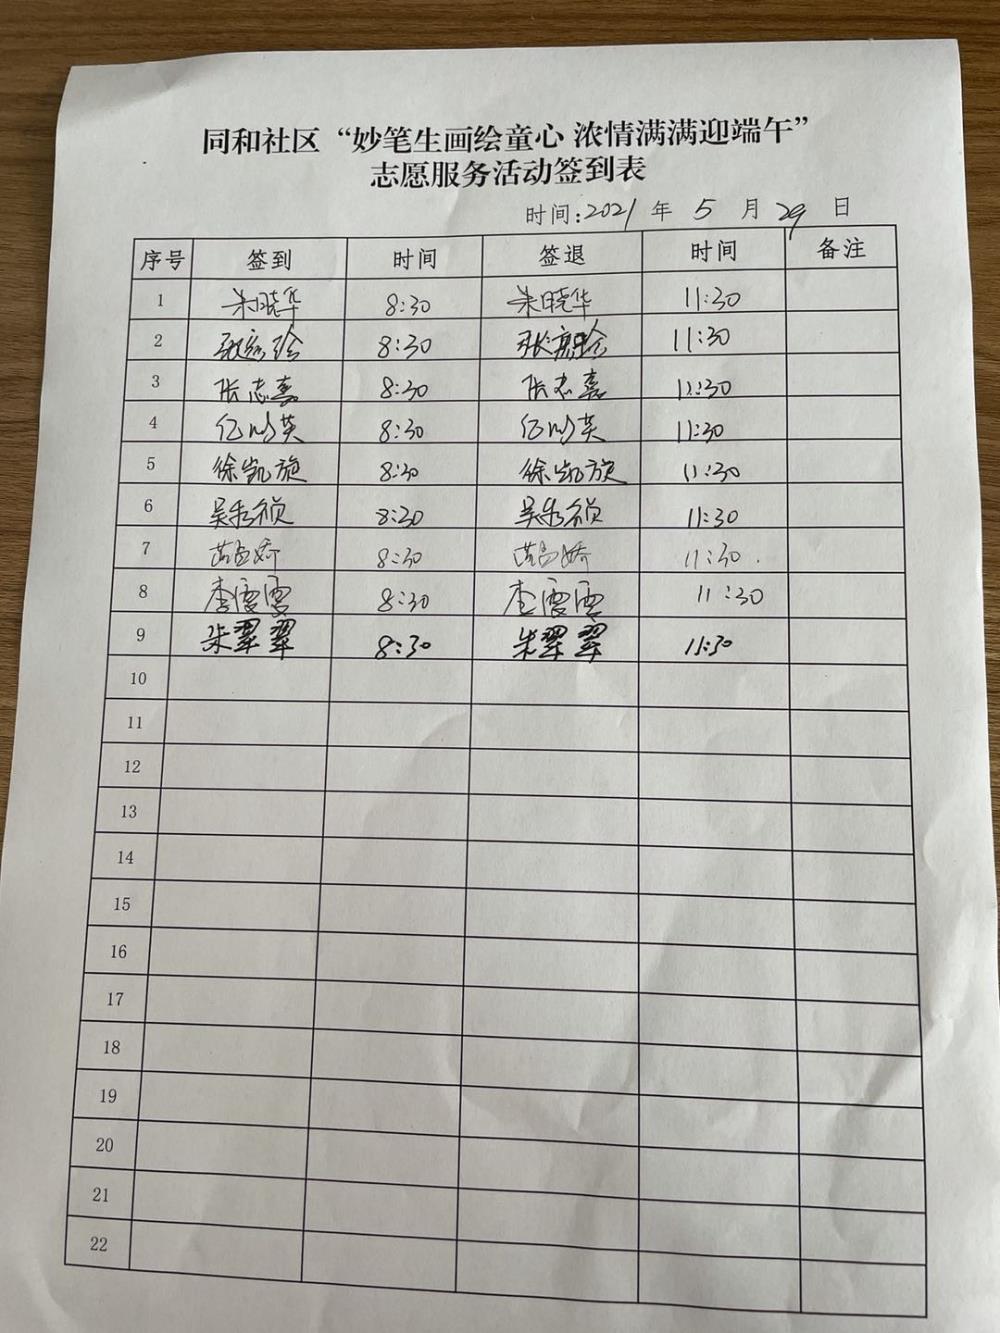 同和社区“妙笔生画绘童心 浓情满满迎端午”
志愿服务活动签到表
时间:2021 年 5 月 29 日
序号 签到 时间 签退 时间 备注
1 朱晓华 8:30 朱晓华 11:30
2 8:30 11:30
3 张志嘉 8:30 张志嘉 11:30
4 8:30 11:30
5 徐凯旋 8:30 徐凯旋 11:30
6 吴秀祯 8:30 吴秀祯 11:30
7 8:30 11:30
8 李雯雯 8:30 李雯雯 11:30
9 朱翠翠 8:30 朱翠翠 11:30
10
11
12
13
14
15
16
17
18
19
20
21
22